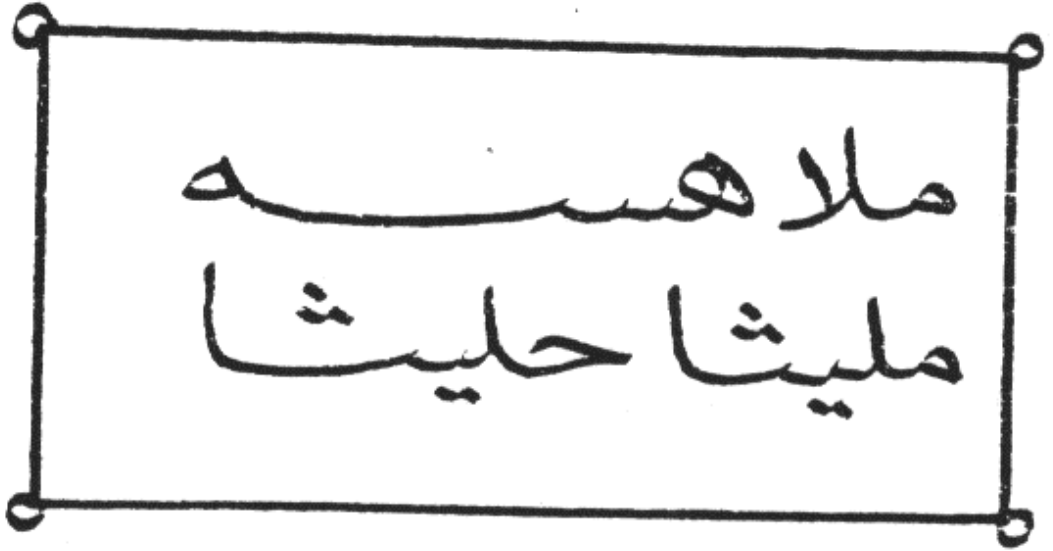 ملاهسه
مليثا حليثا